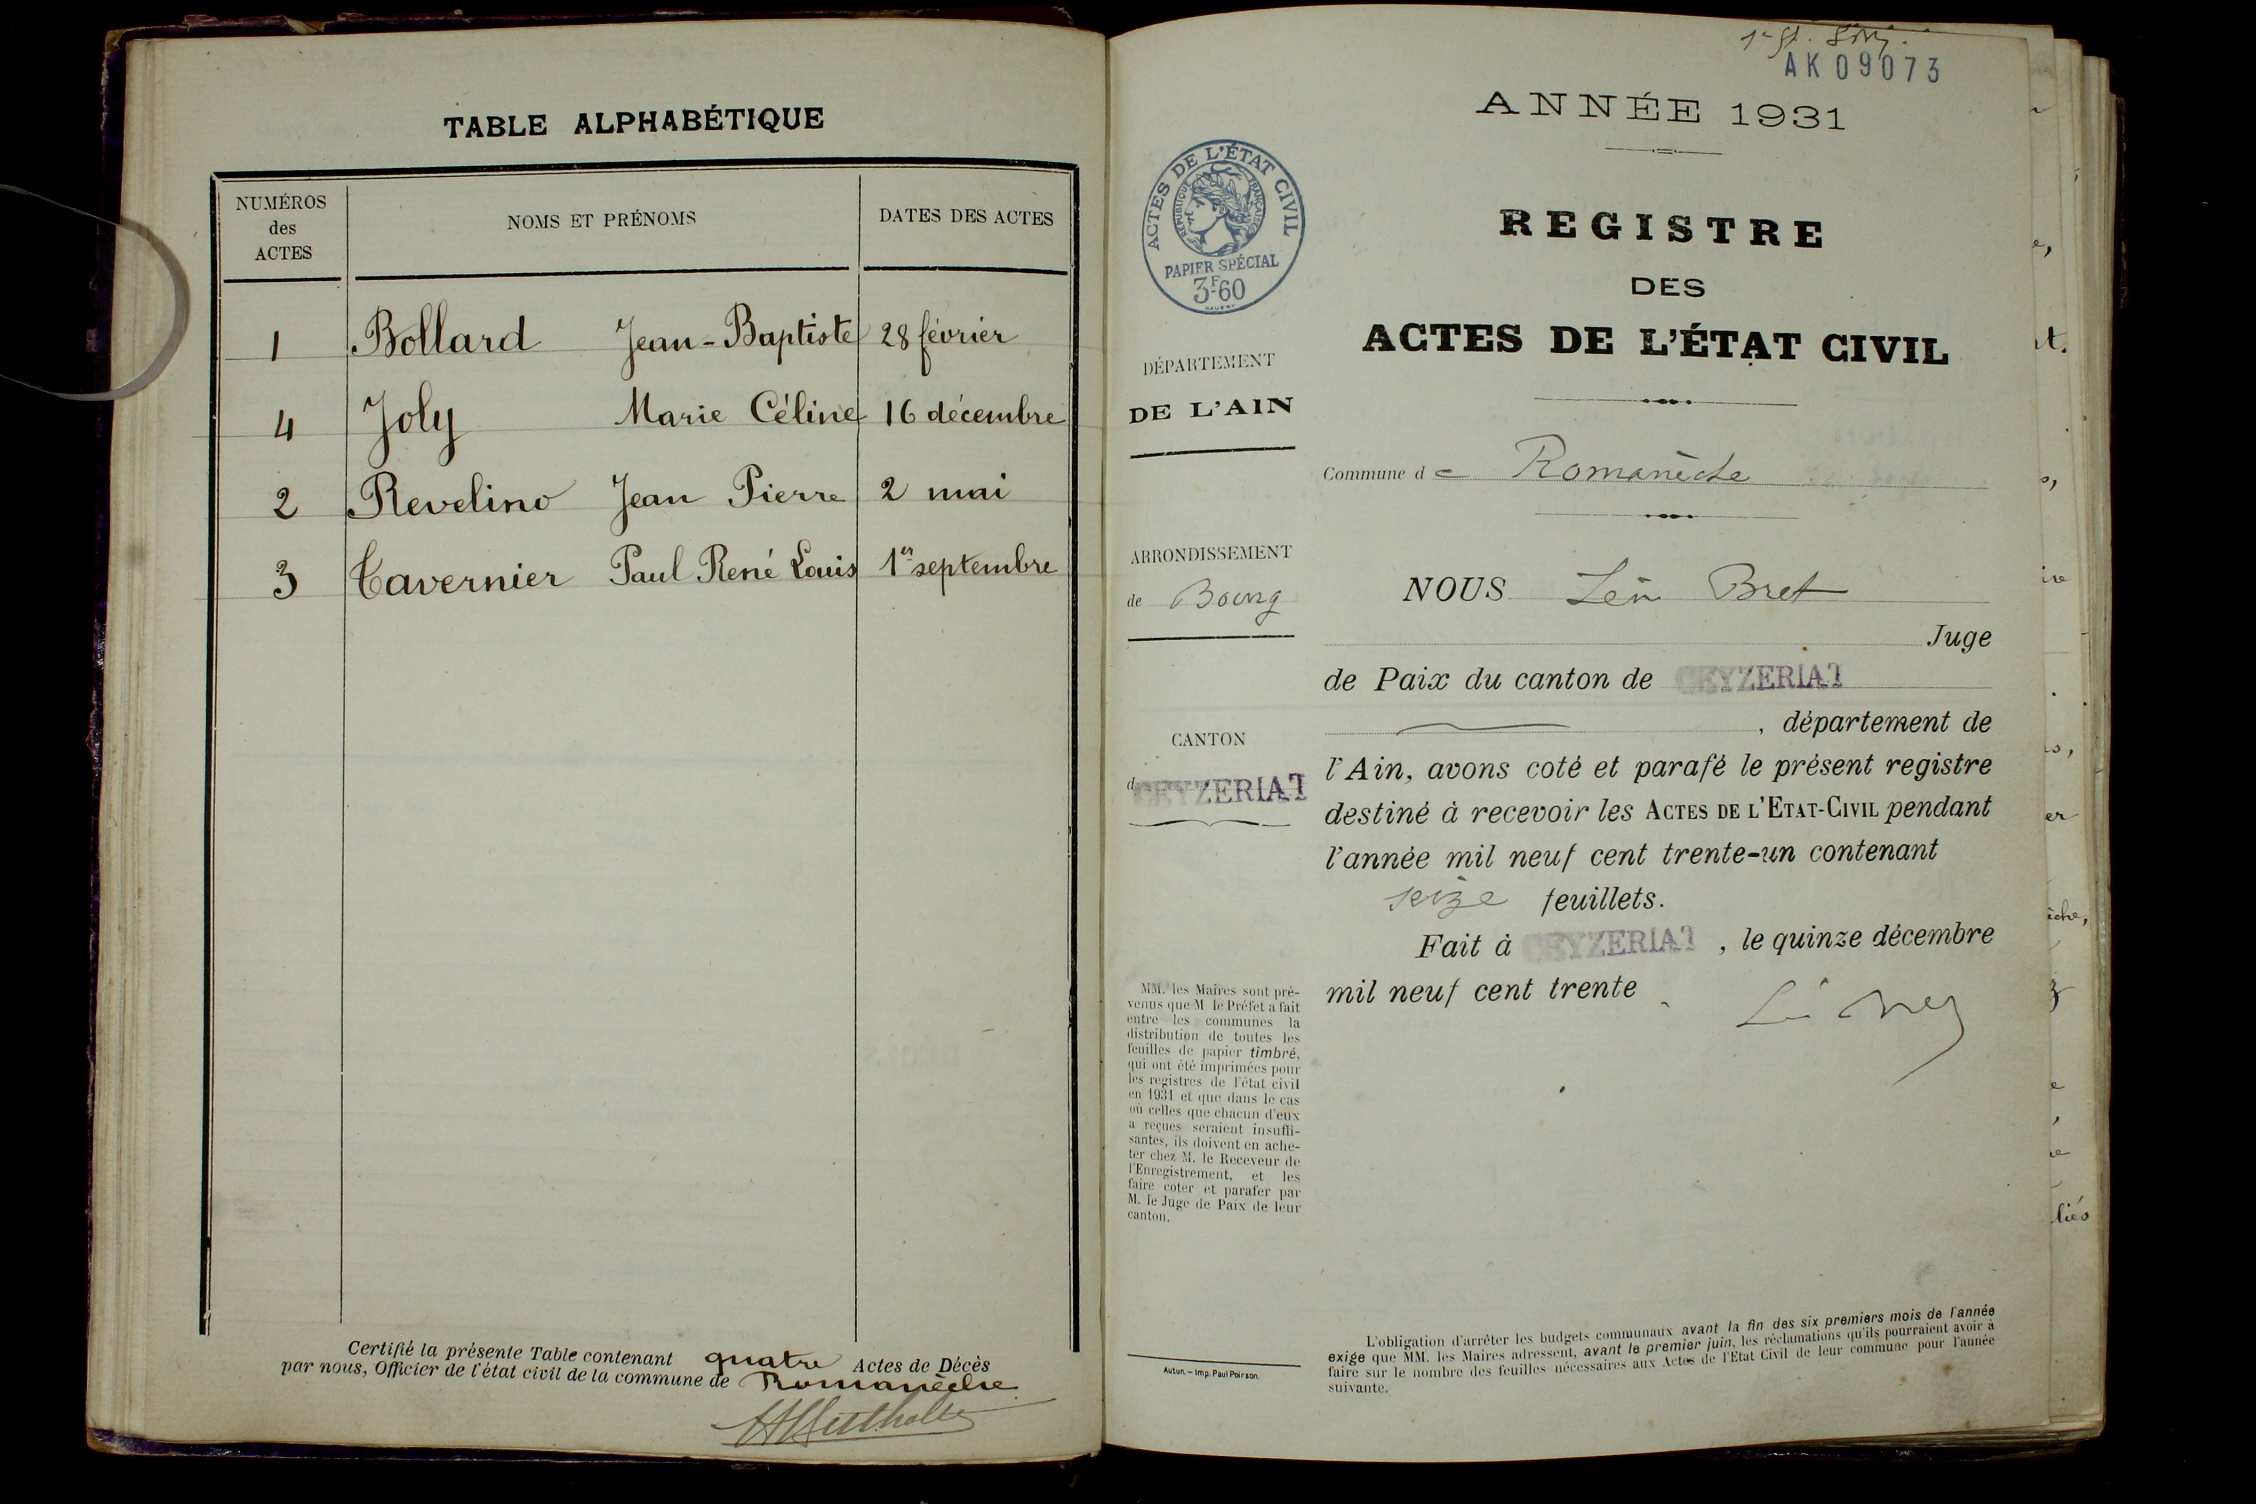 TABLE ALPHABÉTIQUE
NUMÉROS
des
ACTES
NOMS ET PRÉNOMS
DATES DES ACTES
1 Bollard Jean-Baptiste 28 février
4 Joly Marie Céline 16 décembre
2 Revelino Jean Pierre 2 mai
3 Tavernier Paul René Louis 1er septembre
Certifié la présente Table contenant quatre Actes de Décès
par nous, Officier de l'état civil de la commune de Romanèche
AK09073
ANNÉE 1931
ACTES DE L'ÉTAT CIVIL
RÉPUBLIQUE FRANÇAISE
PAPIER SPÉCIAL
3F60
REGISTRE
DES
ACTES DE L'ÉTAT CIVIL
DÉPARTEMENT
DE L'AIN
Commune de Romanèche
ARRONDISSEMENT
de Bourg
CANTON
d CEYZERIAT
NOUS Léon Bret
Juge
de Paix du canton de CEYZERIAT
, département de
l'Ain, avons coté et parafé le présent registre
destiné à recevoir les ACTES DE L'ETAT-CIVIL pendant
l'année mil neuf cent trente-un contenant
seize feuillets.
Fait à CEYZERIAT , le quinze décembre
mil neuf cent trente
MM. les Maires sont pré-
venus que M le Préfet a fait
entre les communes la
distribution de toutes les
feuilles de papier timbré,
qui ont été imprimées pour
les registres de l'état civil
en 1931 et que dans le cas
où celles que chacun d'eux
a reçues seraient insuffi-
santes, ils doivent en ache-
ter chez M. le Receveur de
l'Enregistrement, et les
faire coter et parafer par
M. le Juge de Paix de leur
canton.
Autun. – Imp. Paul Poirson.
L'obligation d'arrêter les budgets communaux avant la fin des six premiers mois de l'année
exige que MM. les Maires adressent, avant le premier juin, les réclamations qu'ils pourraient avoir à
faire sur le nombre des feuilles nécessaires aux Actes de l'Etat Civil de leur commune pour l'année
suivante.